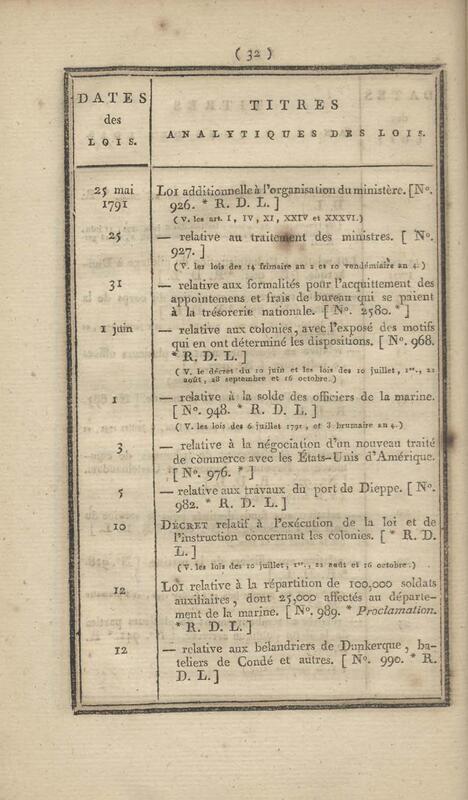 ( 32 )
DATES
des
LOIS.
TITRES
ANALYTIQUES DES LOIS.
25 mai
1791
LOI additionnelle à l'organisation du ministère. [No.
926. * R. D. L.]
( V. les art. I, IV, XI, XXIV et XXXVI.)
25
— relative au traitement des ministres. [ No.
927. ]
( V. les lois des 14 frimaire an 2 et 10 vendémiaire an 4.)
31
— relative aux formalités pour l'acquittement des
appointemens et frais de bureau qui se paient
à la trésorerie nationale. [ No. 2580. * ]
1 juin
— relative aux colonies, avec l'exposé des motifs
qui en ont déterminé les dispositions. [ No. 968.
* R. D. L. ]
( V. le décret du 10 juin et les lois des 10 juillet, 1er., 22
août, 28 septembre et 16 octobre.)
1
— relative à la solde des officiers de la marine.
[ No. 948. * R. D. L. ]
( V. les lois des 6 juillet 1791, et 3 brumaire an 4.)
3
— relative à la négociation d'un nouveau traité
de commerce avec les États-Unis d'Amérique.
[ No. 976. * ]
5
— relative aux travaux du port de Dieppe. [ No.
982. * R. D. L. ]
10
DÉCRET relatif à l'exécution de la loi et de
l'instruction concernant les colonies. [ * R. D.
L. ]
( V. les lois des 10 juillet, 1er., 22 août et 16 octobre.)
12
LOI relative à la répartition de 100,000 soldats
auxiliaires, dont 25,000 affectés au départe-
ment de la marine. [ No. 989. * Proclamation.
* R. D. L. ]
12
— relative aux bélandriers de Dunkerque, ba-
teliers de Condé et autres. [ No. 990. * R.
D. L. ]